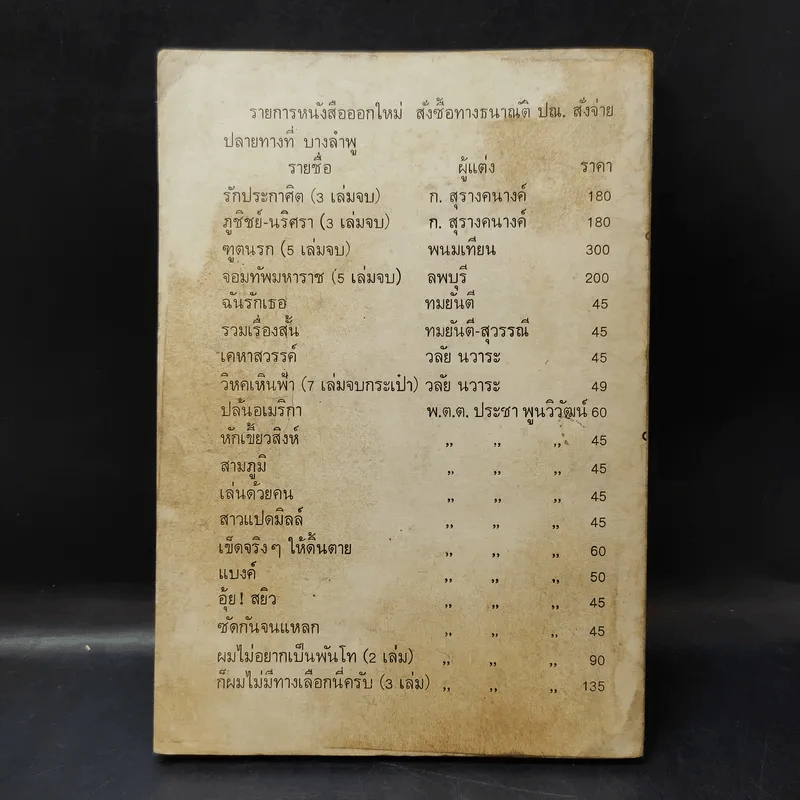 รายการหนังสือออกใหม่ สั่งซื้อทางธนาณัติ ปณ. สั่งจ่าย
ปลายทางที่ บางลำพู
รายชื่อ ผู้แต่ง ราคา
รักประกาศิต (3 เล่มจบ) ก. สุรางคนางค์ 180
ภูชิชย์-นริศรา (3 เล่มจบ) ก. สุรางคนางค์ 180
ฑูตนรก (5 เล่มจบ) พนมเทียน 300
จอมทัพมหาราช (5 เล่มจบ) ลพบุรี 200
ฉันรักเธอ ทมยันตี 45
รวมเรื่องสั้น ทมยันตี-สุวรรณี 45
เคหาสวรรค์ วลัย นวาระ 45
วิหคเหินฟ้า (7 เล่มจบกระเป๋า) วลัย นวาระ 49
ปล้นอเมริกา พ.ต.ต. ประชา พูนวิวัฒน์ 60
หักเขี้ยวสิงห์ ,, ,, ,, 45
สามภูมิ ,, ,, ,, 45
เล่นด้วยคน ,, ,, ,, 45
สาวแปดมิลล์ ,, ,, ,, 45
เข็ดจริงๆ ให้ดิ้นตาย ,, ,, ,, 60
แบงค์ ,, ,, ,, 50
อุ้ย! สยิว ,, ,, ,, 45
ซัดกันจนแหลก ,, ,, ,, 45
ผมไม่อยากเป็นพันโท (2 เล่ม) ,, ,, ,, 90
ก็ผมไม่มีทางเลือกนี่ครับ (3 เล่ม) ,, ,, ,, 135